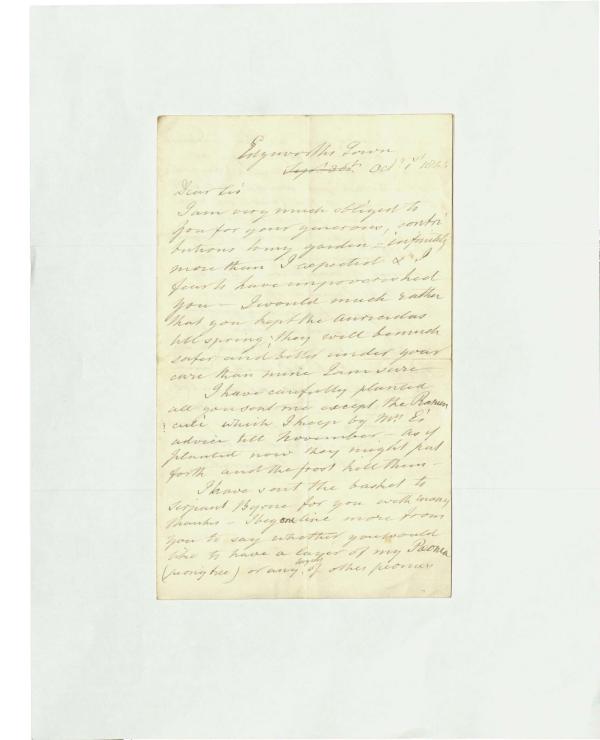 Edgeworths Town
Sepr 30th Octr 1st
Dear Sir
I am very much obliged to
you for your generous, contri
butions to my garden - infinitely
more than I expected & I
fear to have impoverished
you - I would much rather
that you kept the auriculas
till spring; they will be much
safer and better under your
care than mine I am sure -
I have carefully planted
all you sent me except the Ranun
culi which I keep by Mrs E's
advice till November - as if
planted now they might put
forth and the frost kill them -
I have sent the basket to
Serjeant Byrne for you with many
thanks - I beg one line more from
you to say whether you would
like to have a layer of my Paonia
(peony tree) or any of other peonies